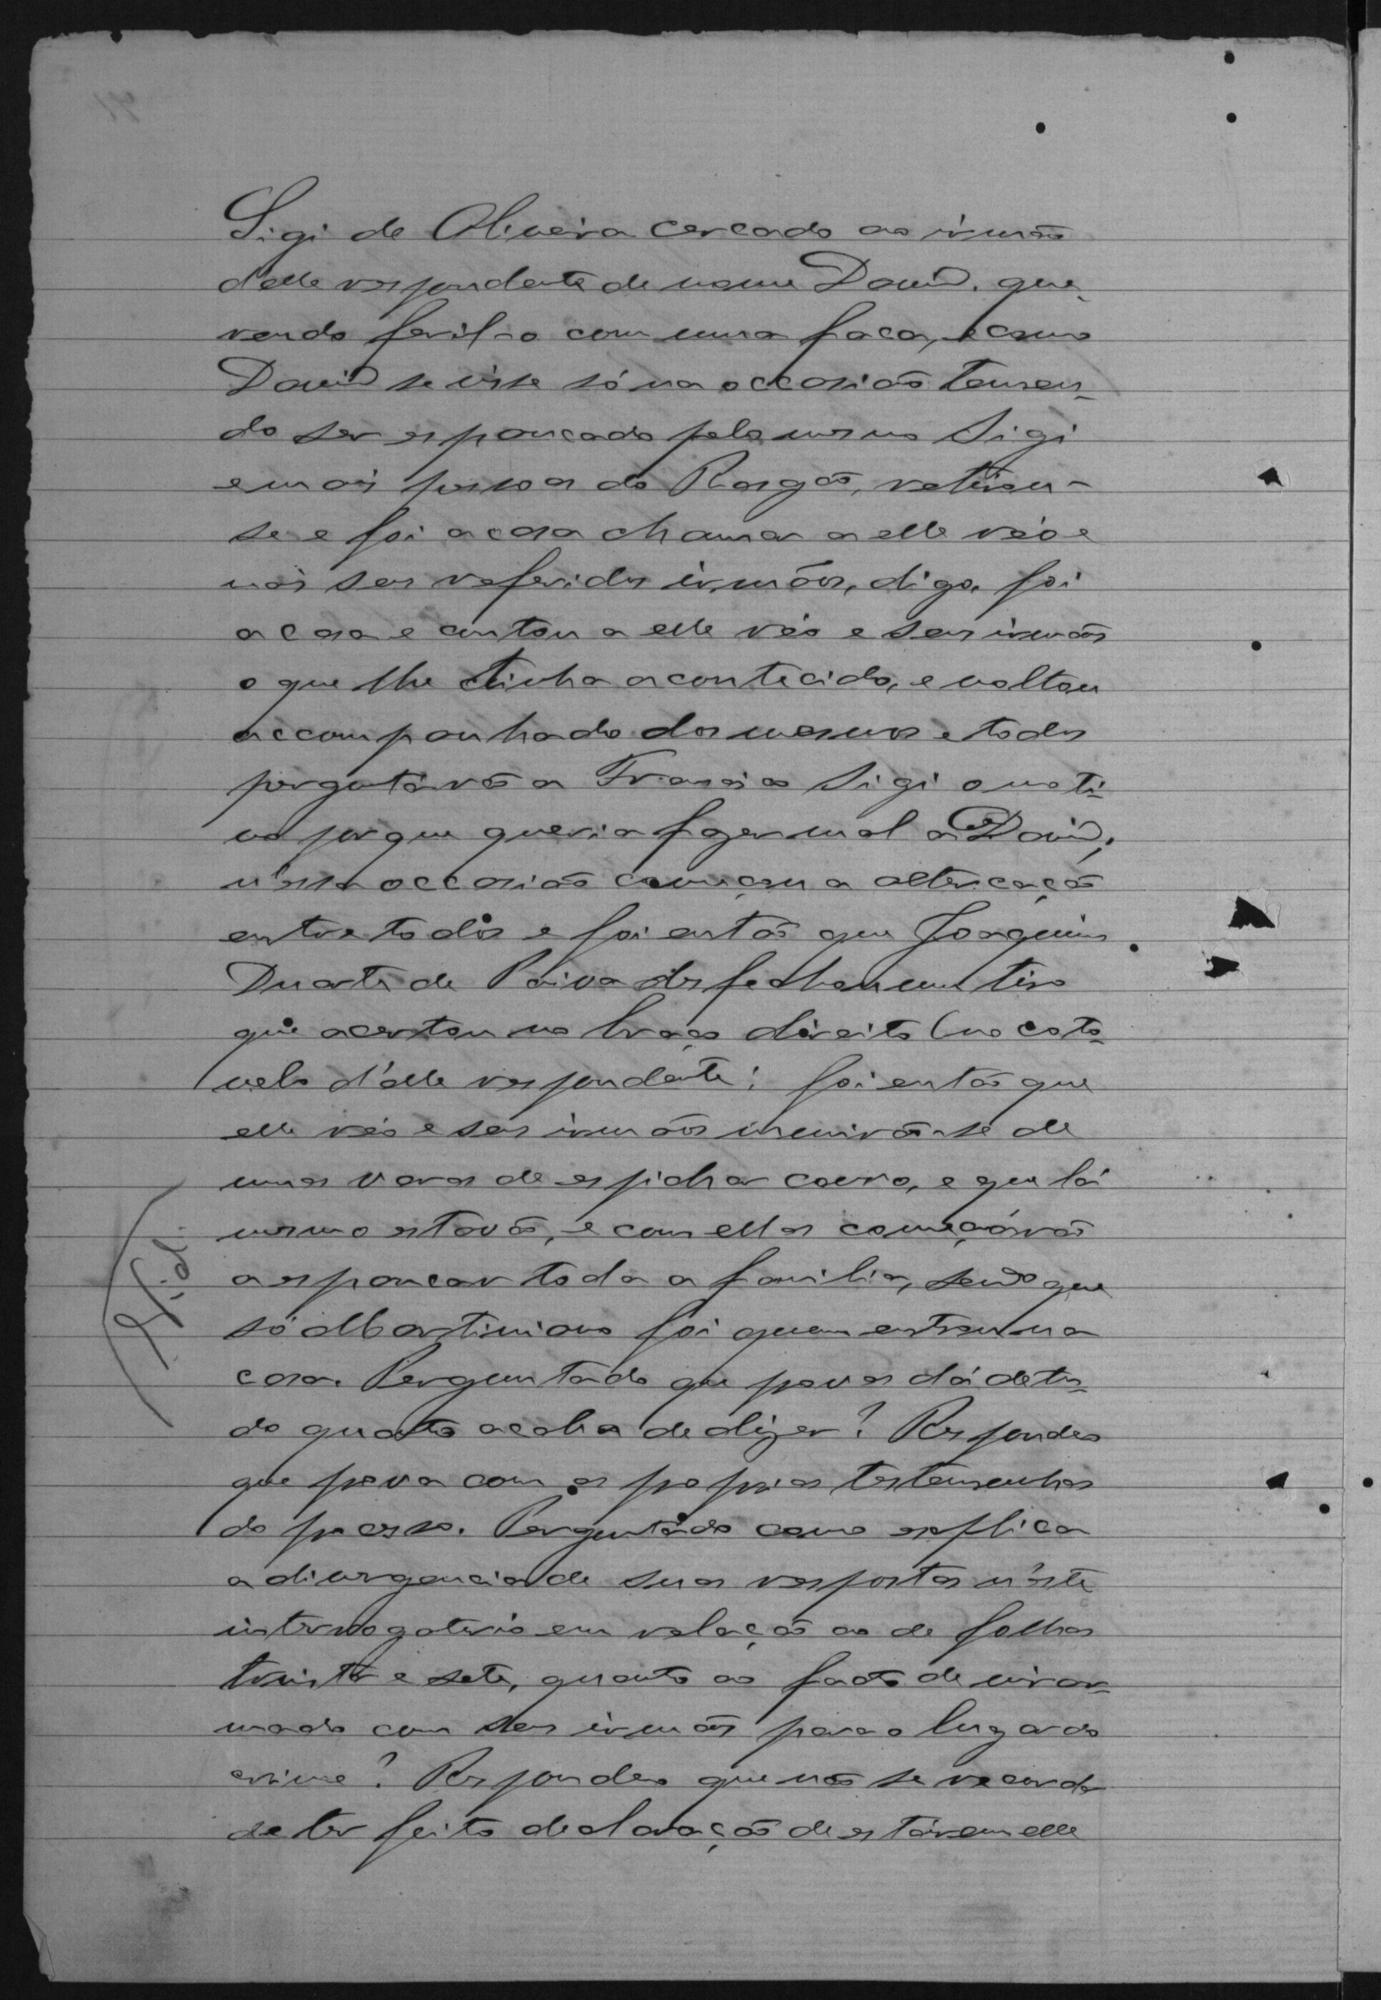 Sigi de Oliveira cercado ao irmão
delle respondente de nome David, que-
rendo feril-o com uma faca, e como
David se visse só na occasião temen-
do ser espancado pelo mesmo Sigi
e mais pessoas do Rasgão, retirou-
se e foi a casa chamar a elle réo e
mais seus referidos irmãos, digo, foi
a casa e contou a elle réo e seus irmãos
o que lhe tinha acontecido, e voltou
accompanhado dos mesmos e todos
pergutárão a Francisco Sigi o moti-
vo porque queria fazer mal a David;
n'essa occasião começou a altercação
entre todos e foi então que Joaquim
Duarte de Paiva desfechou um tiro
que acertou no braço direito (no coto-
velo d'elle respondente; foi então que
elle réo e seus irmãos munirão-se de
umas varas de espichar couro, e que lá
mesmo estavão, e com ellas começárão
a espancar toda a familia, sendo que
só Martiniano foi quem entrou na
casa. Perguntado que provas dá de tu-
do quanto acaba de dizer? Respondeo
que prova com as proprias testemunhas
do processo. Perguntado como explica
a divergencia de suas respostas n'este
interrogatorio em relação ao de folhas
trinta e sete, quanto ao facto de vir ar-
mado com seus irmãos para o lugar do
crime? Respondeo que não se recorda
de ter feito declaração de estárem elle